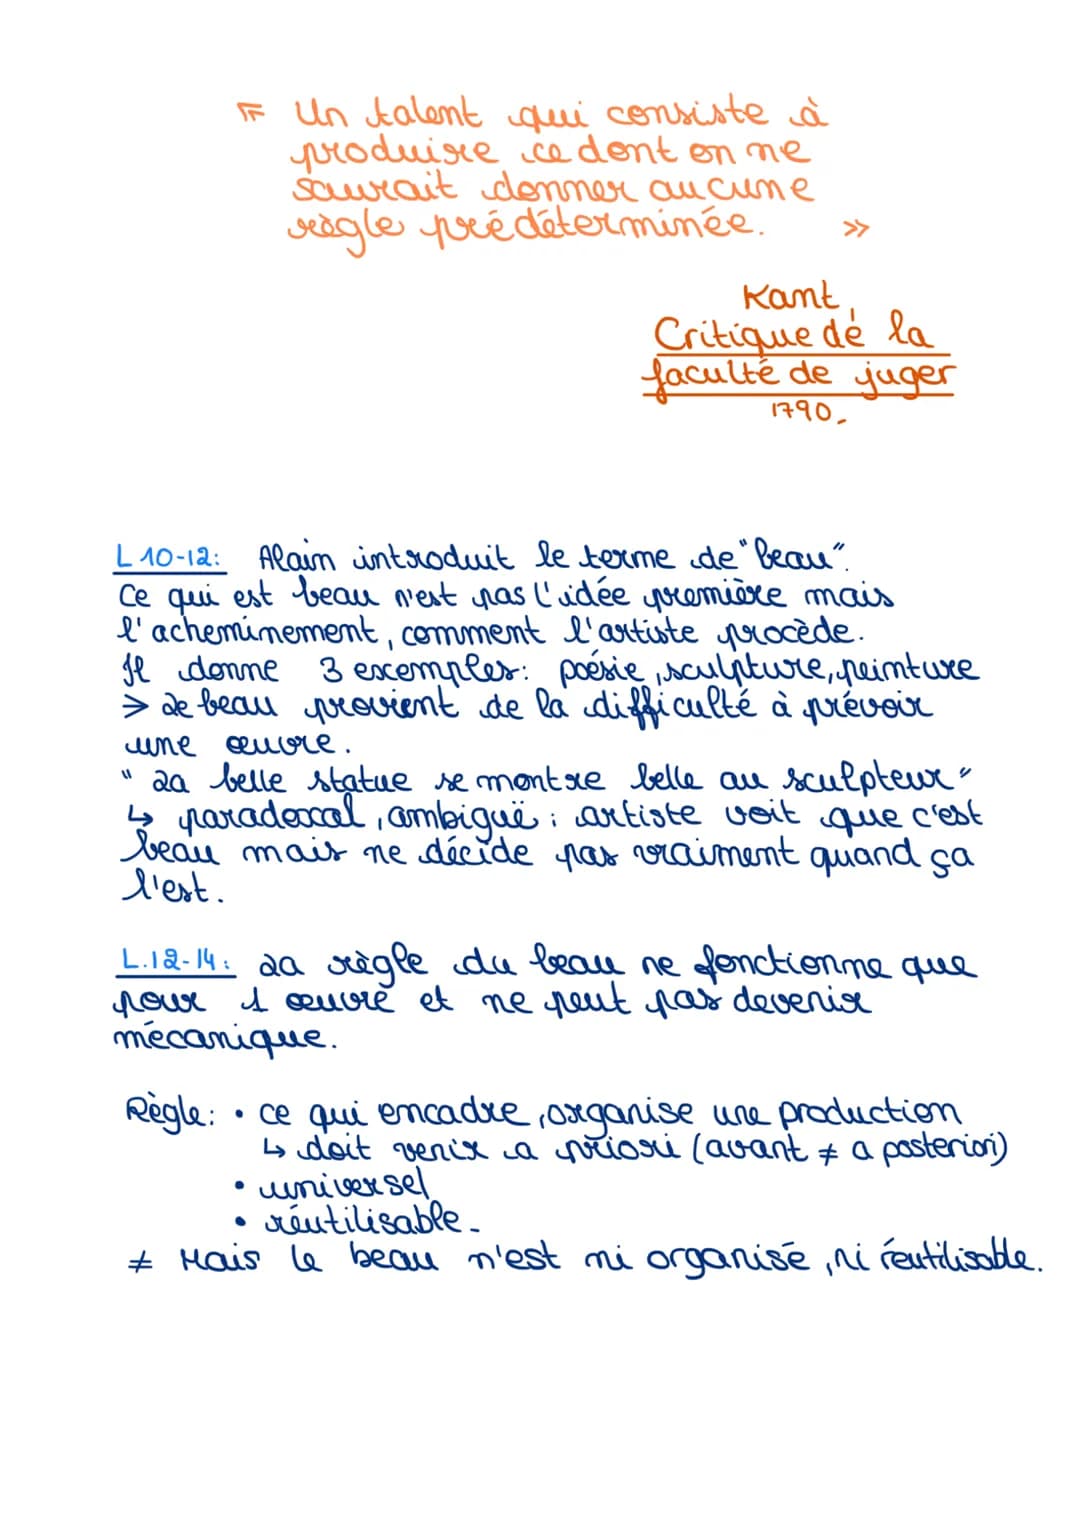 « Un talent qui consiste à
produire ce dont on ne
saurait donner aucune
règle prédéterminée. »
Kant,
Critique de la
faculté de juger
1790.
L 10-12: Alain introduit le terme de "beau".
Ce qui est beau n'est pas l'idée première mais
l'acheminement, comment l'artiste procède.
Il donne 3 exemples: poésie, sculpture, peinture
> Le beau provient de la difficulté à prévoir
une œuvre.
" La belle statue se montre belle au sculpteur"
↳ paradoxal, ambiguë : artiste voit que c'est
beau mais ne décide pas vraiment quand ça
l'est.
L.12-14: La règle du beau ne fonctionne que
pour 1 œuvre et ne peut pas devenir
mécanique.
Règle: • ce qui encadre, organise une production
↳ doit venir a priori (avant ≠ a posteriori)
• universel
• réutilisable.
≠ Mais le beau n'est ni organisé, ni réutilisable.